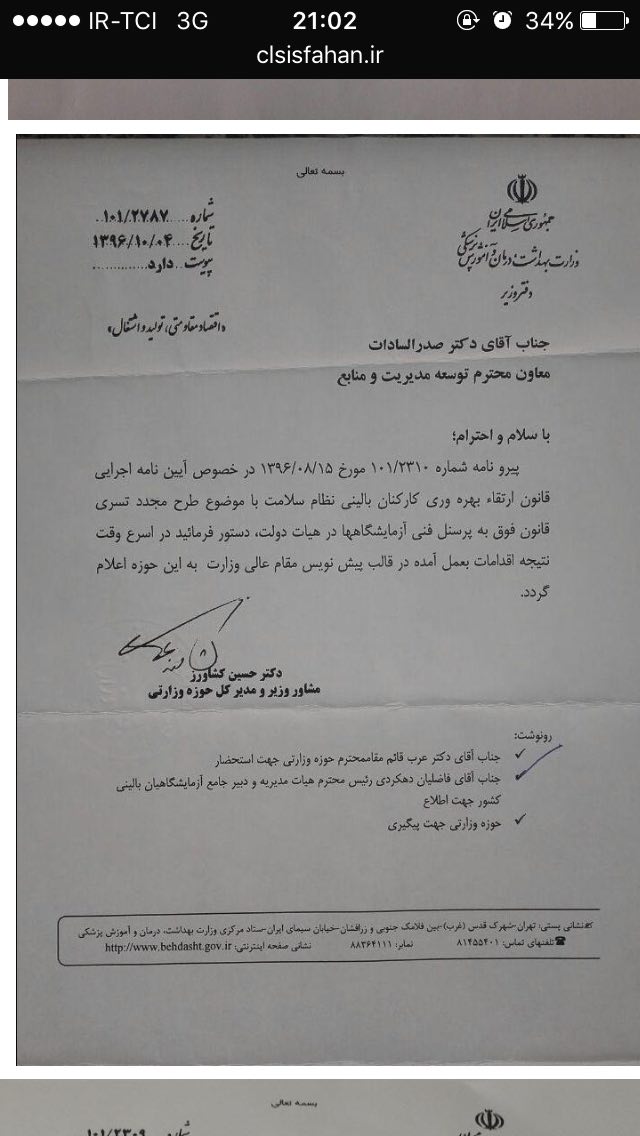 IR-TCI 3G 21:02 34%
clsisfahan.ir
بسمه تعالی
جمهوری اسلامی ایران
وزارت بهداشت، درمان و آموزش پزشکی
دفتر وزیر
شماره ۱۰۱/۲۷۸۷
تاریخ ۱۳۹۶/۱۰/۰۴
پیوست دارد
«اقتصاد مقاومتی، تولید و اشتغال»
جناب آقای دکتر صدرالسادات
معاون محترم توسعه مدیریت و منابع
با سلام و احترام؛
پیرو نامه شماره ۱۰۱/۲۳۱۰ مورخ ۱۳۹۶/۰۸/۱۵ در خصوص آیین نامه اجرایی
قانون ارتقاء بهره وری کارکنان بالینی نظام سلامت با موضوع طرح مجدد تسری
قانون فوق به پرسنل فنی آزمایشگاهها در هیات دولت، دستور فرمائید در اسرع وقت
نتیجه اقدامات بعمل آمده در قالب پیش نویس مقام عالی وزارت به این حوزه اعلام
گردد.
دکتر حسین کشاورز
مشاور وزیر و مدیر کل حوزه وزارتی
رونوشت:
✓ جناب آقای دکتر عرب قائم مقام‌محترم حوزه وزارتی جهت استحضار
✓ جناب آقای فاضلیان دهکردی رئیس محترم هیات مدیریه و دبیر جامع آزمایشگاهیان بالینی
کشور جهت اطلاع
✓ حوزه وزارتی جهت پیگیری
نشانی پستی: تهران-شهرک قدس (غرب)-بین فلامک جنوبی و زرافشان-خیابان سیمای ایران-ستاد مرکزی وزارت بهداشت، درمان و آموزش پزشکی
تلفنهای تماس: ۸۱۴۵۵۴۰۱ نمابر: ۸۸۳۶۴۱۱۱ نشانی صفحه اینترنتی: http://www.behdasht.gov.ir
بسمه تعالی
شماره ۱۰۱/۲۳۰۹